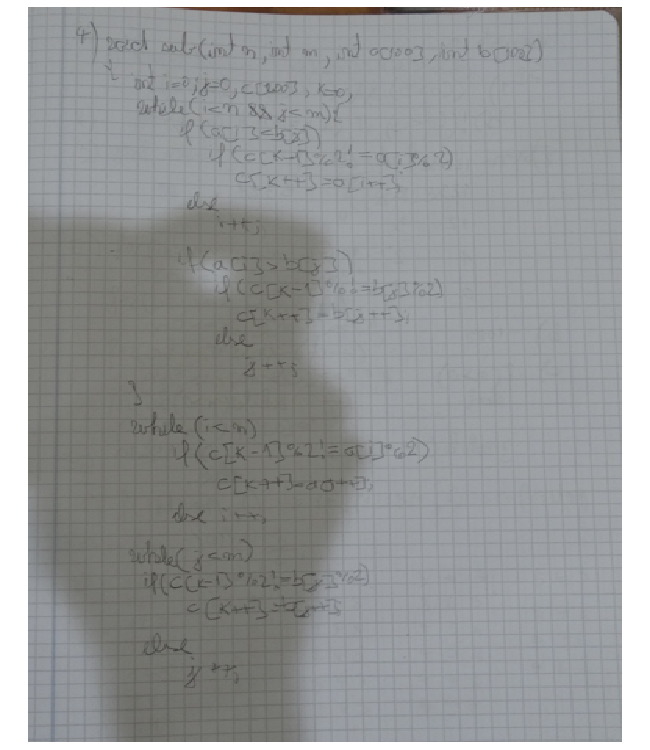 4) void sub(int n, int m, int a[200], int b[202])
{ int i=0, j=0, c[200], k=0;
while(i<n && j<m){
if(a[i]<b[j])
if(c[k-1]%2!=a[i]%2)
c[k++]=a[i++];
else
i++;
if(a[i]>b[j])
if(c[k-1]%!=b[j]%2)
c[k++]=b[j++];
else
j++;
}
while(i<n)
if(c[k-1]%2!=a[i]%2)
c[k++]=a[i++];
else i++;
while(j<m)
if(c[k-1]%2!=b[j]%2)
c[k++]=b[j++]
else
j++;